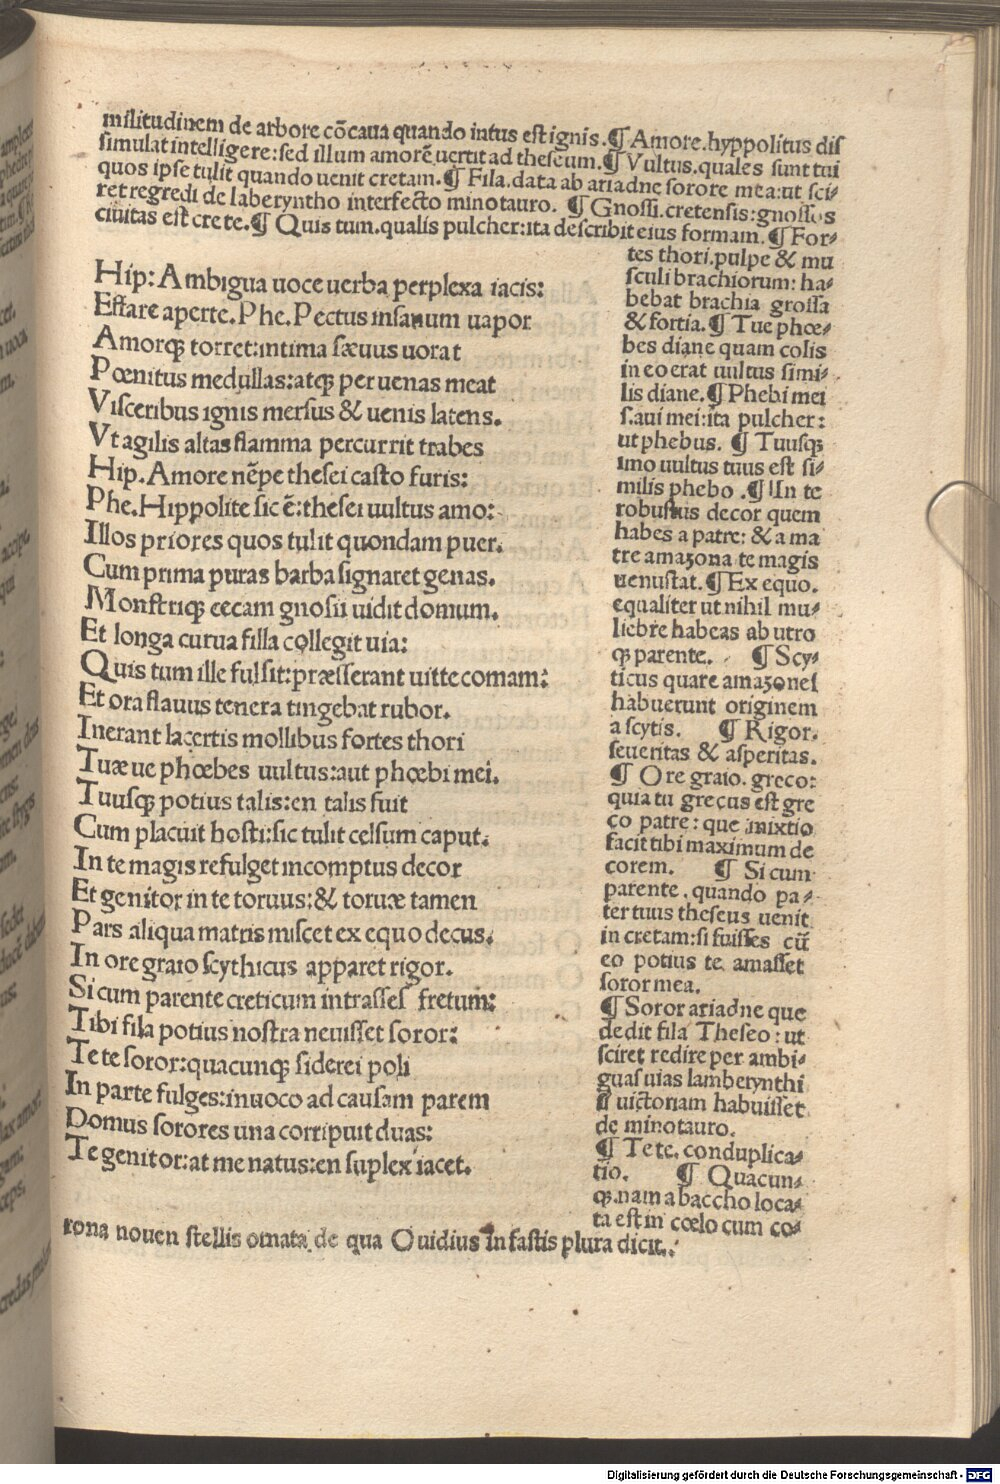 militudinem de arbore cōcaua quando intus est ignis.¶ Amore.hyppolitus dis
simulat intelligere:sed illum amorē uertit ad theseum.¶ Vultus.quales sunt tui
quos ipse tulit quando uenit cretam.¶ Fila.data ab ariadne sorore mea:ut sci-
ret regredi de laberyntho interfecto minotauro. ¶ Gnossi.cretensis:gnossos
ciuitas est crete.¶ Quis tum.qualis pulcher:ita describit eius formam.¶ For-
Hip:Ambigua uoce uerba perplexa iacis:
Effare aperte.Phe.Pectus insanum uapor
Amorq; torret:intima sæuus uorat
Pœnitus medullas:atq; per uenas meat
Visceribus ignis mersus & uenis latens.
Vt agilis altas flamma percurrit trabes
Hip.Amore nēpe thesei casto furis:
Phe.Hippolite sic ē:thesei uultus amo:
Illos priores quos tulit quondam puer.
Cum prima puras barba signaret genas.
Monstriq; cecam gnosii uidit domum.
Et longa curua filla collegit uia:
Quis tum ille fulsit:præsserant uitte comam:
Et ora flauus tenera tingebat rubor.
Inerant lacertis mollibus fortes thori
Tuæ ue phœbes uultus:aut phœbi mei.
Tuusq; potius talis:en talis fuit
Cum placuit hosti:sic tulit celsum caput.
In te magis refulget incomptus decor
Et genitor in te toruus:& toruæ tamen
Pars aliqua matris miscet ex equo decus.
In ore graio scythicus apparet rigor.
Si cum parente creticum intrasses fretum:
Tibi fila potius nostra neuisset soror:
Te te soror:quacunq; siderei poli
In parte fulges:inuoco ad causam parem
Domus sorores una corripuit duas:
Te genitor:at me natus:en suplex iacet.
tes thori.pulpe & mu
sculi brachiorum: ha-
bebat brachia grossa
& fortia.¶ Tue phœ-
bes diane quam colis
in eo erat uultus simi-
lis diane.¶ Phebi mei
s.aui mei:ita pulcher:
ut phebus. ¶ Tuusq;
imo uultus tuus est si-
milis phebo .¶ In te
robustus decor quem
habes a patre: & a ma
tre amazona te magis
uenustat.¶ Ex equo.
equaliter ut nihil mu-
liebre habeas ab utro
q; parente. ¶ Scy-
ticus quare amazones
habuerunt originem
a scytis. ¶ Rigor.
seueritas & asperitas.
¶ Ore graio. greco:
quia tu grecus est gre
co patre: que mixtio
facit tibi maximum de
corem. ¶ Si cum
parente . quando pa-
ter tuus theseus uenit
in cretam:si fuisses cū
eo potius te amasset
soror mea.
¶ Soror ariadne que
dedit fila Theseo: ut
sciret redire per ambi-
guas uias lamberynthi
uictoriam habuisset
de minotauro.
¶ Te te. conduplica-
tio. ¶ Quacun-
q;.nam a baccho loca-
ta est in cœlo cum co-
rona nouen stellis ornata de qua Ouidius in fastis plura dicit.
Digitalisierung gefördert durch die Deutsche Forschungsgemeinschaft - DFG